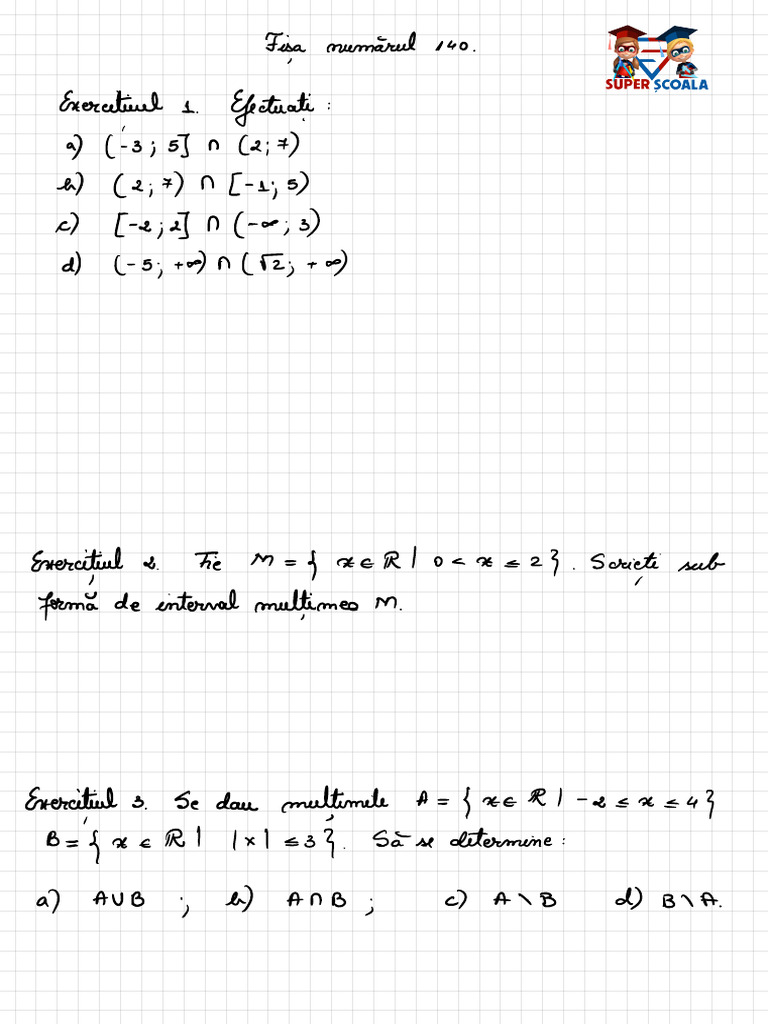 Fișa numărul 140.
SUPER ȘCOALA
Exercițiul 1. Efectuați :
a) (-3 ; 5] ∩ (2 ; 7)
b) (2 ; 7) ∩ [-1 ; 5)
c) [-2 ; 2] ∩ (-∞ ; 3)
d) (-5 ; +∞) ∩ (√2 ; +∞)
Exercițiul 2. Fie M = { x ∈ ℝ | 0 < x ≤ 2 } . Scrieți sub
formă de interval mulțimea M.
Exercițiul 3. Se dau mulțimile A = { x ∈ ℝ | -2 ≤ x ≤ 4 }
B = { x ∈ ℝ | |x| ≤ 3 } . Să se determine :
a) A ∪ B ; b) A ∩ B ; c) A \ B d) B \ A.